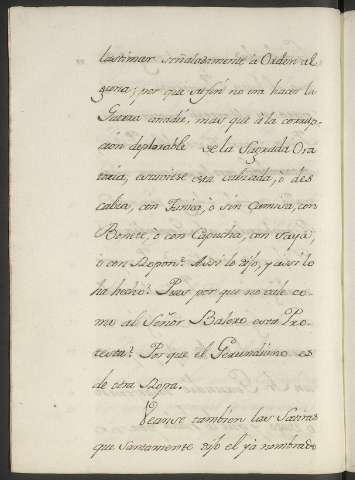 lastimar señaladamente, à Orden al
guna; por que su fin no era hacer la
Guerra à nadie, mas que à la corrup-
cion deplorable de la Sagrada Ora
toria, estuviese esta calzada, ò des
calza, con Tunica, ò sin Camisa, con
Bonete, ò con Capucha, con Saya,
ò con Ropon. Assi lo dijo, y assi lo
ha hecho? Pues por que no vale co-
mo al Señor Balero esta Pro-
testa? Por que el Gerundismo es
de otra Ropa.
Veanse tambien las Satiras
que Santamente dijo el ya nombrado